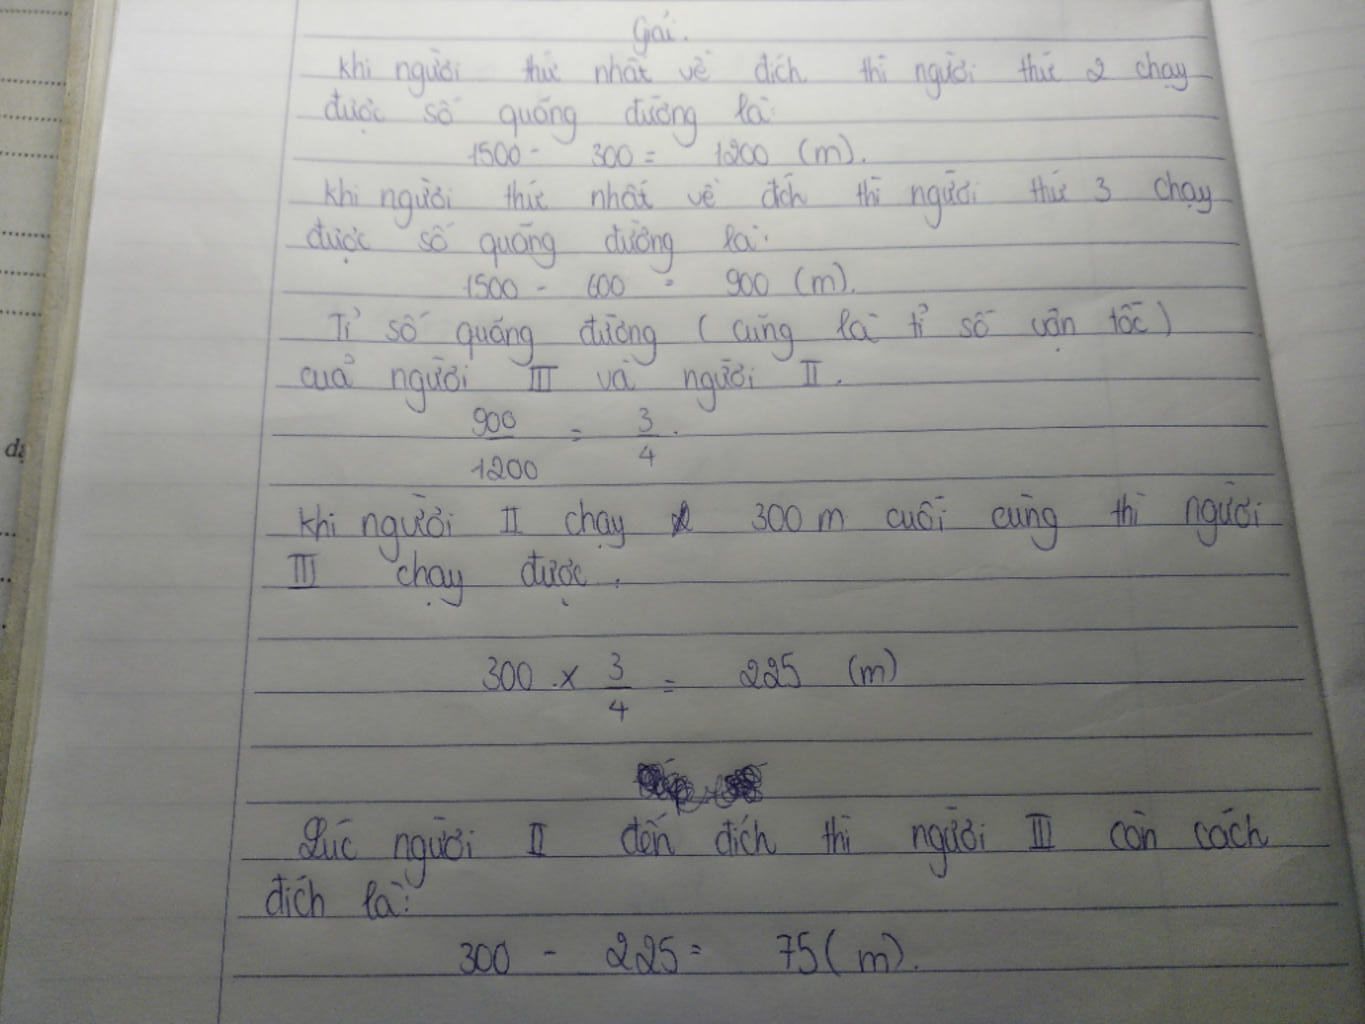 Giải.
Khi người thứ nhất về đích thì người thứ 2 chạy
được số quãng đường là:
1500 - 300 = 1200 (m).
Khi người thứ nhất về đích thì người thứ 3 chạy
được số quãng đường là:
1500 - 600 = 900 (m).
Tỉ số quãng đường (cũng là tỉ số vận tốc)
của người III và người II.
900/1200 = 3/4.
Khi người II chạy 300 m cuối cùng thì người
III chạy được.
300 x 3/4 = 225 (m)
Lúc người II đến đích thì người III còn cách
đích là:
300 - 225 = 75 (m).